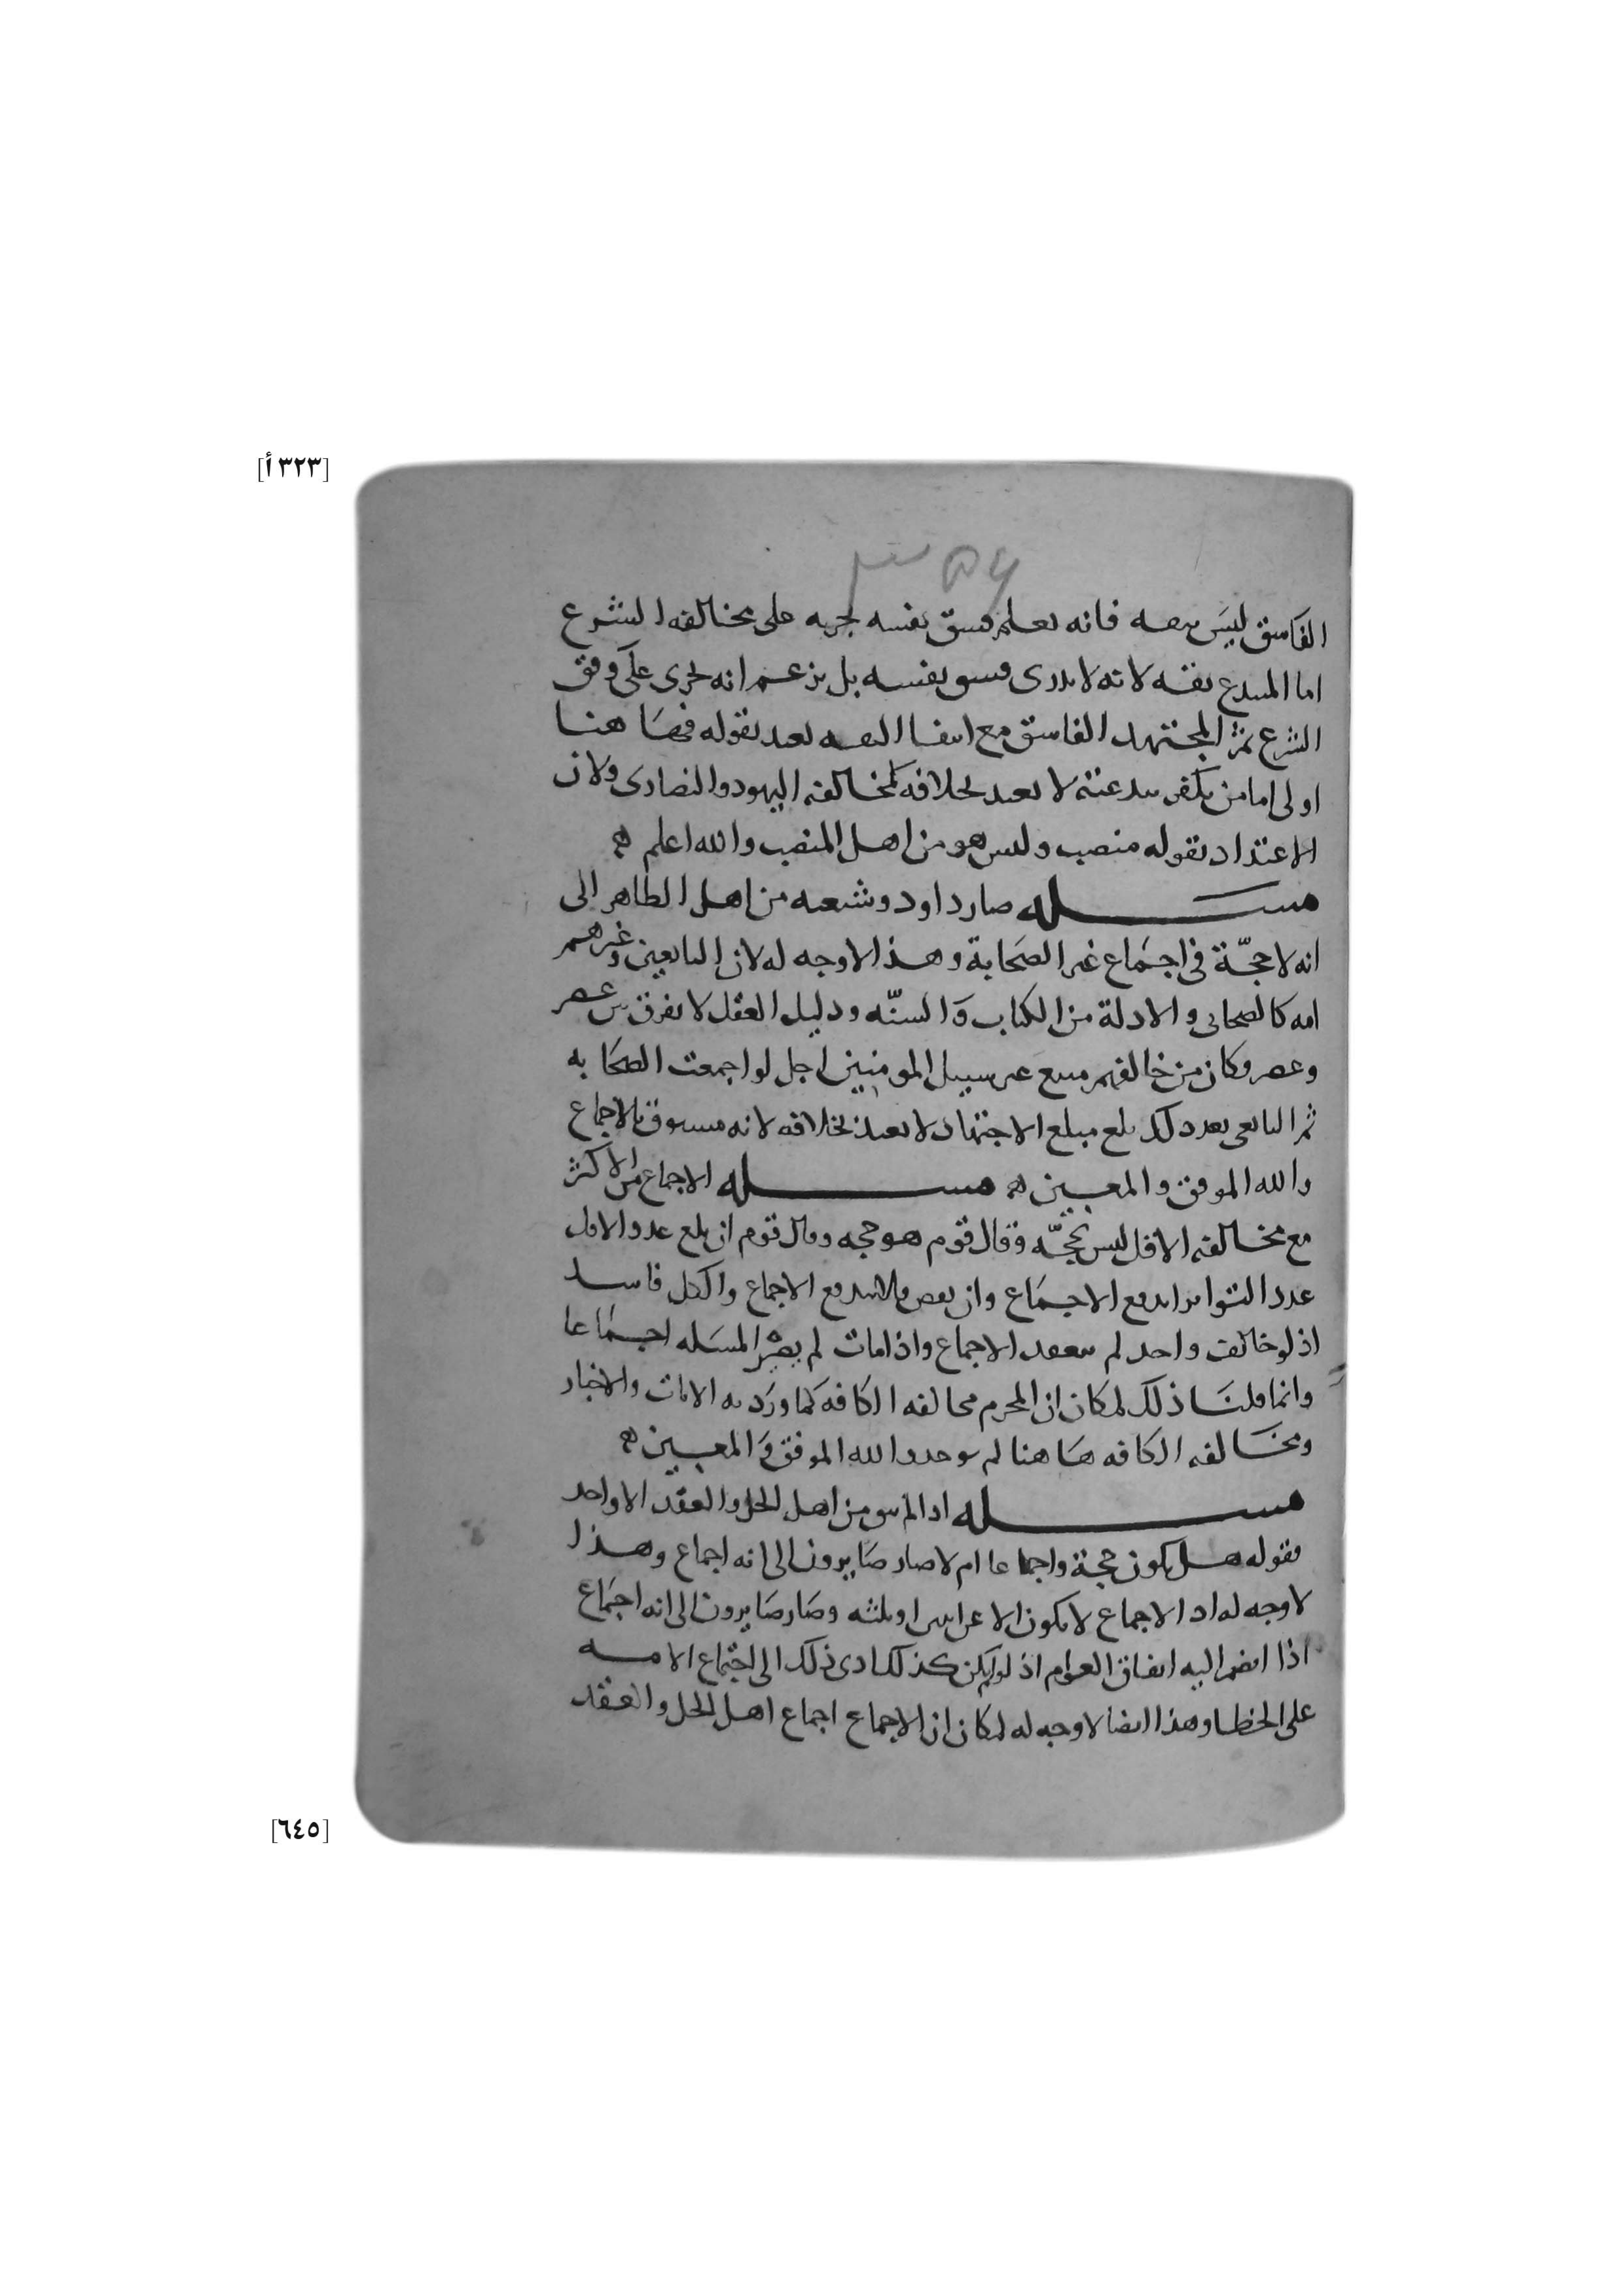 [٣٢٣أ]
٣٥٤
الفاسق ليس بثقه فانه يعلم فسق نفسه لجريه على مخالفه الشرع
اما المبتدع ثقه لانه لا يدرى فسق نفسه بل يزعم انه يجرى على وفق
الشرع ثم المجتهد الفاسق مع انتفا الثقه يعتد بقوله فهاهنا
اولى اما من يكفر ببدعته لا يعتد بخلافه كمخالفه اليهود والنصارى ولان
الاعتداد بقوله منصب وليس هو من اهل المنصب والله اعلم
مسله صار داود وشيعه من اهل الظاهر الى
انه لا حجّة فى اجماع غير الصحابة وهذا لا وجه له لان التابعين وغيرهم
امه كالصحابى والادلة من الكتاب والسنّه ودليل العقل لا يفرق بين عصر
وعصر وكان من خالفهم متبع غير سبيل المومنين اجل لو اجمعت الصحابه
ثم التابعى بعد ذلك بلغ مبلغ الاجتهاد لا يعتد بخلافه لانه مسبوق بالاجماع
والله الموفق والمعين مسله الاجماع من الاكثر
مع مخالفه الاقل ليس بحجّه وقال قوم هو حجه وقال قوم ان بلغ عدد الاقل
عدد التواتر اندفع الاجماع وان نقص فلا يندفع الاجماع والكل فاسد
اذ لو خالف واحد لم ينعقد الاجماع واذا مات لم يصر المسله اجماعا
وانما قلنا ذلك لمكان ان المحرم مخالفه الكافه كما ورد به الايات والاخبار
ومخالفه الكافه هاهنا لم يوجد والله الموفق والمعين
مسله اذا لم يبق من اهل الحل والعقد الا واحد
فقوله هل يكون حجة واجماعا ام لا صار صايرون الى انه اجماع وهذا
لا وجه له اذ الاجماع لا يكون الا عن اثنين او ثلثه وصار صايرون الى انه اجماع
اذا انضم اليه اتفاق العوام اذ لو لم يكن كذلك ادى ذلك الى اجتماع الامه
على الخطا وهذا ايضا لا وجه له لمكان ان الاجماع اجماع اهل الحل والعقد
[٦٤٥]